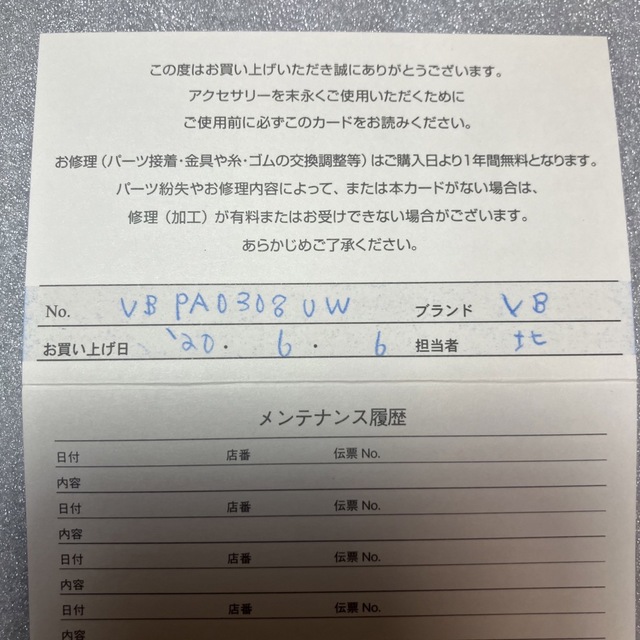 この度はお買い上げいただき誠にありがとうございます。
アクセサリーを末永くご使用いただくために
ご使用前に必ずこのカードをお読みください。
お修理（パーツ接着・金具や糸・ゴムの交換調整等）はご購入日より1年間無料となります。
パーツ紛失やお修理内容によって、または本カードがない場合は、
修理（加工）が有料またはお受けできない場合がございます。
あらかじめご了承ください。
No. VBPA0308UW ブランド VB
お買い上げ日 '20・6・6 担当者 北
メンテナンス履歴
日付 店番 伝票 No.
内容
日付 店番 伝票 No.
内容
日付 店番 伝票 No.
内容
日付 店番 伝票 No.
内容